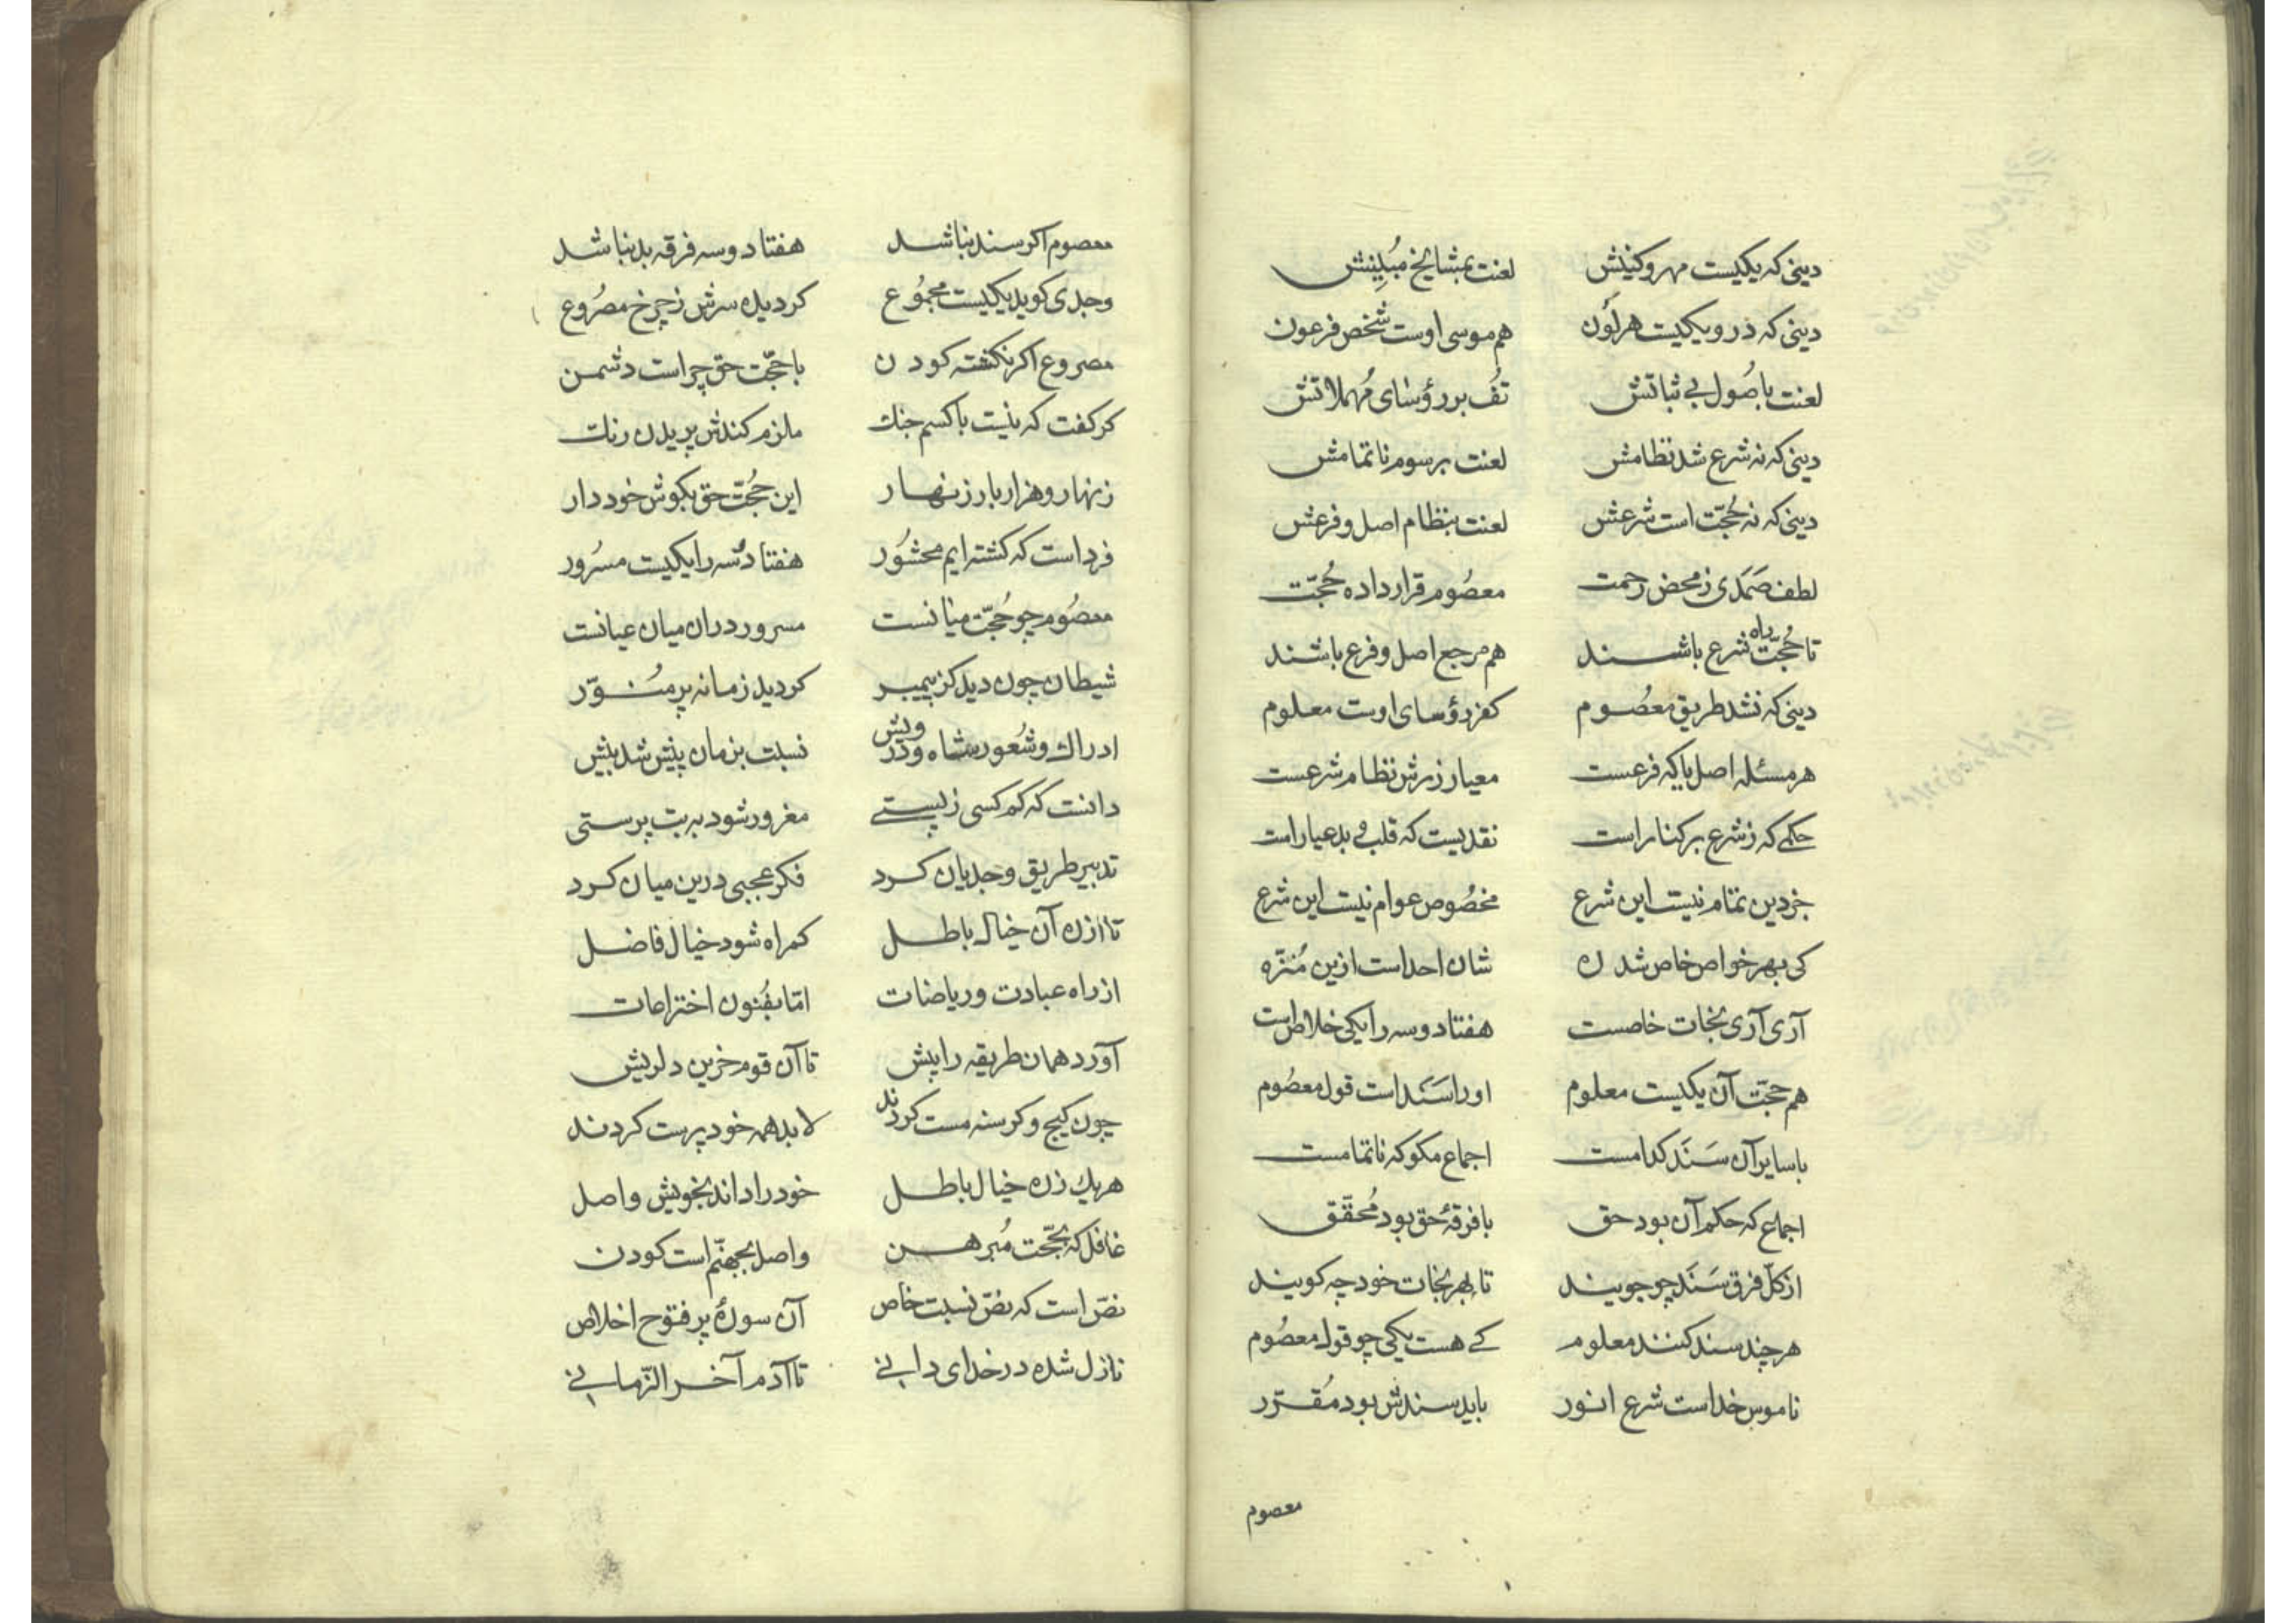 دینی که یکیست مهر و کینش لعنت بمشایخ مبینش
دینی که درو یکیست هر لون هم موسی اوست شخص فرعون
لعنت باصول بی ثباتش تف بر رؤسای مهملاتش
دینی که نه شرع شد نظامش لعنت برسوم ناتمامش
دینی که نه حجت است شرعش لعنت بنظام اصل و فرعش
لطف صمدی ز محض رحمت معصوم قرار داده حجت
تا حجت راه شرع باشند هم مرجع اصل و فرع باشند
دینی که نشد طریق معصوم کفر رؤسای اوست معلوم
هر مسئله اصل یا که فرعست معیار زرش نظام شرعست
حکمی که ز شرع بر کنار است نقدیست که قلب و بد عیار است
جز دین تمام نیست این شرع مخصوص عوام نیست این شرع
کی بهر خواص خاص شد ره شان احد است ازین منزه
آری آری نجات خاصست هفتاد و سه را یکی خلاص است
هم حجت آن یکیست معلوم او را سند است قول معصوم
با سایر آن سند کدامست اجماع مکو که ناتمامست
اجماع که حکم آن بود حق با فرقهٔ حق بود محقق
از کل فرق سند چو جویند تا بهر نجات خود چه کویند
هر چند سند کنند معلوم کی هست یکی چو قول معصوم
ناموس خداست شرع انور باید سندش بود مقرر
معصوم
معصوم اکر سند نباشد هفتاد و سه فرقه بد نباشد
وجدی کوید یکیست مجموع کردیده سرش ز چرخ مصروع
مصروع اکر نکشته کودن با حجت حق چراست دشمن
کر کفت که نیست با کسم جنك ملزم کندش پریدن رنك
زنهار و هزار بار زنهار این حجت حق بکوش خود دار
فرداست که کشته ایم محشور هفتاد و سه را یکیست مسرور
معصوم چو حجت میانست مسرور دران میان عیانست
شیطان چون دید کز پیمبر کردید زمانه پر منور
ادراك و شعور شاه و درویش نسبت بزمان پیش شد بیش
دانست که کم کسی ز پستی مغرور شود به بت پرستی
تدبیر طریق وجدیان کرد فکر عجبی درین میان کرد
تا از ره آن خیال باطل کمراه شود خیال فاضل
از راه عبادت و ریاضات اما بفنون اختراعات
آورد همان طریقه را پیش تا آن قوم حزین دلریش
چون کیج و کرسنه مست کردند لابد همه خود پرست کردند
هر یك ز ره خیال باطل خود را داند بخویش واصل
غافل که بحجت مبرهن واصل بجهنم است کودن
نص است که نص نسبت خاص آن سورهٔ پر فتوح اخلاص
نازل شده در خدای دانی تا آدم آخر الزمانی